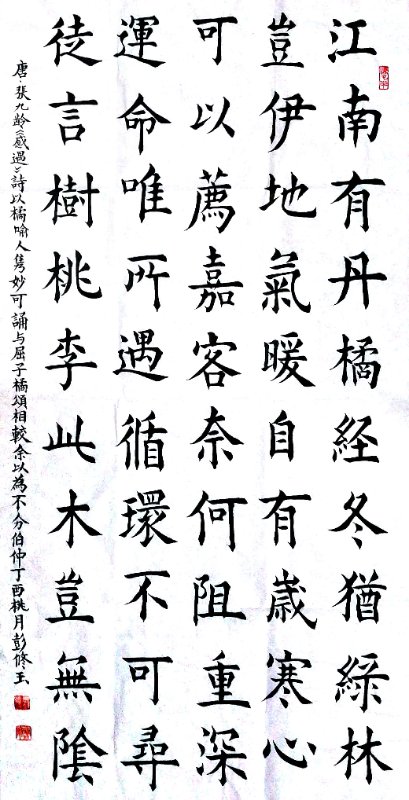 江南有丹橘経冬猶綠林
豈伊地氣暖自有歲寒心
可以薦嘉客奈何阻重深
運命唯所遇循環不可尋
徒言樹桃李此木豈無陰
唐·張九齡《感遇》詩以橘喻人隽妙可誦与屈子橘頌相較余以為不分伯仲丁酉桃月彭修玉